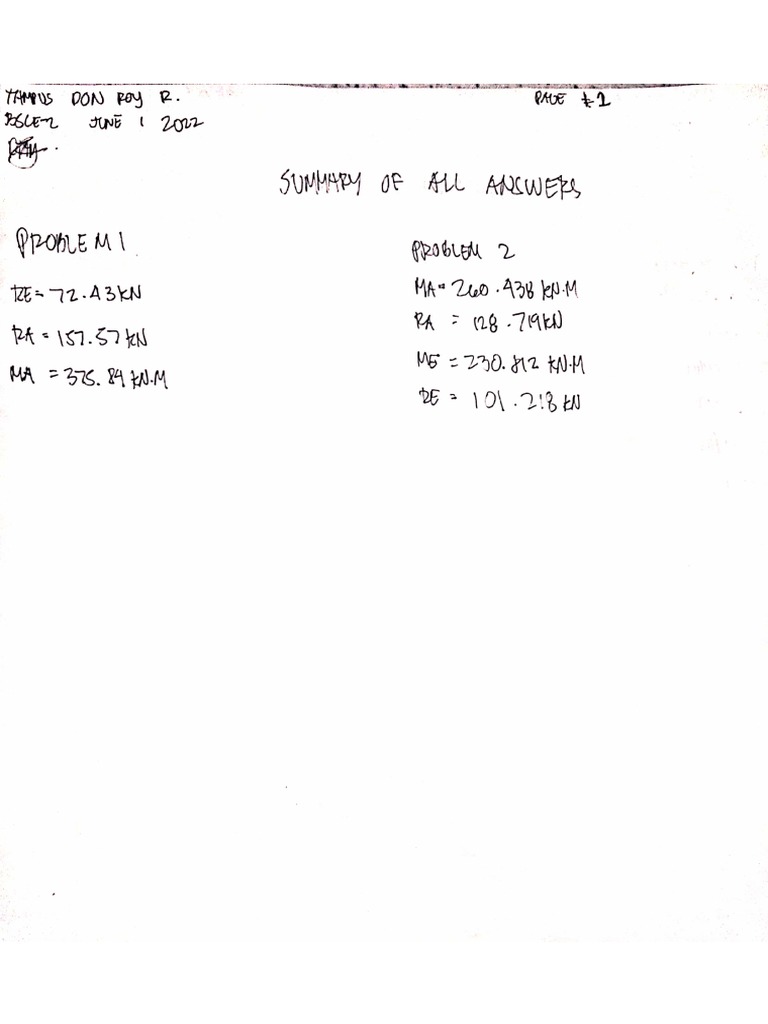 TAMPUS DON ROY R.
PAGE #1
BSCE-2 JUNE 1 2022
SUMMARY OF ALL ANSWERS
PROBLEM 1
RE = 72.43 KN
RA = 157.57 KN
MA = 375.84 KN.M
PROBLEM 2
MA = 260.438 KN.M
RA = 128.719 KN
ME = 230.812 KN.M
RE = 101.218 KN